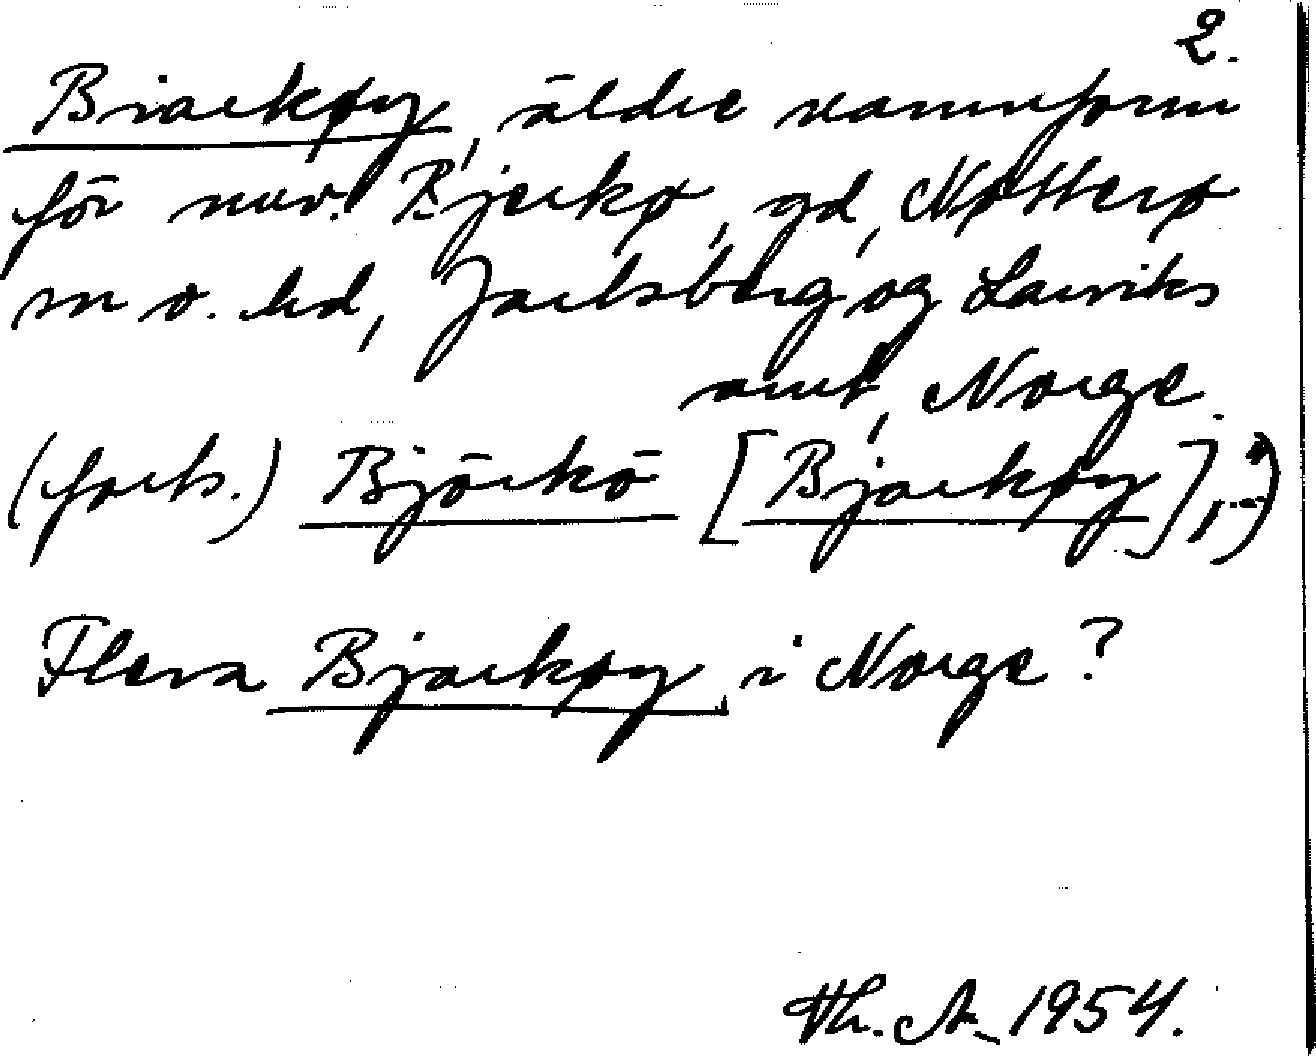 2.
Biarkøy, äldre namnform
för nuv. Bjerkø, gd, Nøtterø
sn o. hd, Jarlsberg og Larviks
amt, Norge.
(forts.) Björkö [Bjarkøy],
Flera Bjarkøy i Norge?
Th. A. 1954.